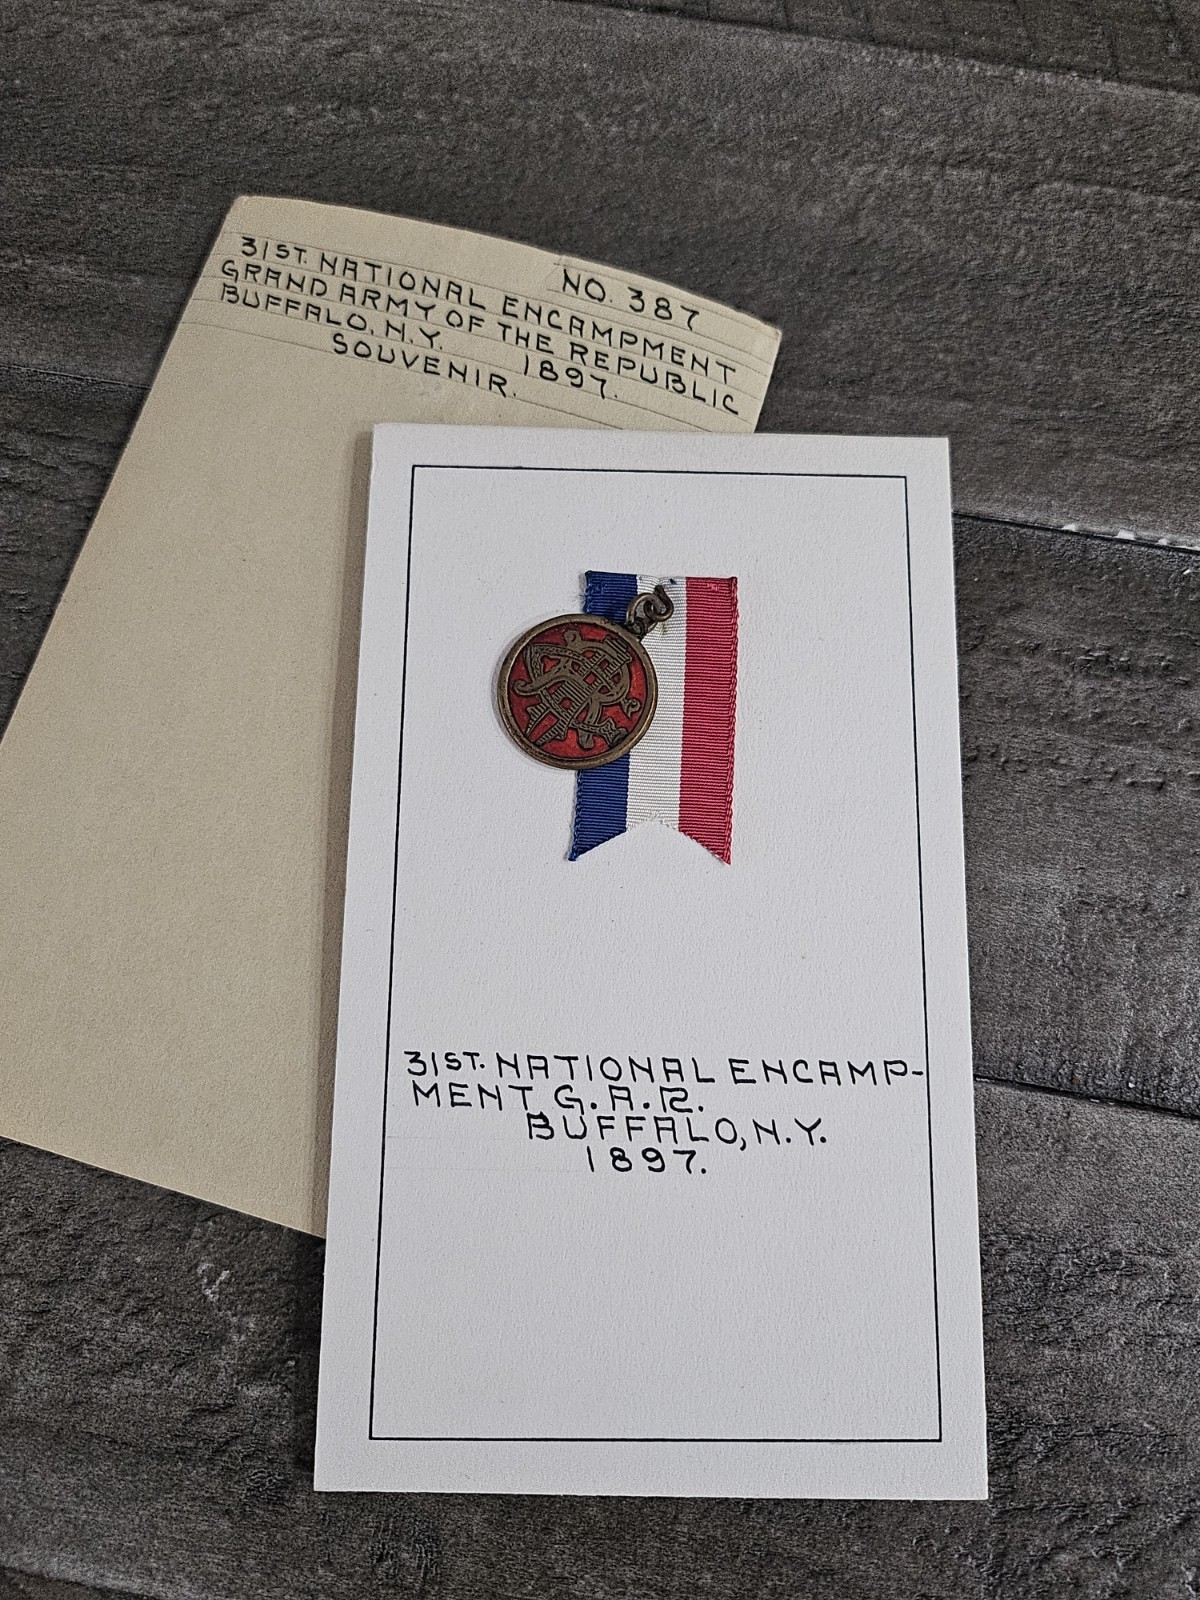 NO. 387
31ST. NATIONAL ENCAMPMENT
GRAND ARMY OF THE REPUBLIC
BUFFALO, N.Y. 1897.
SOUVENIR.
31ST. NATIONAL ENCAMP-
MENT, G.A.R.
BUFFALO, N.Y.
1897.